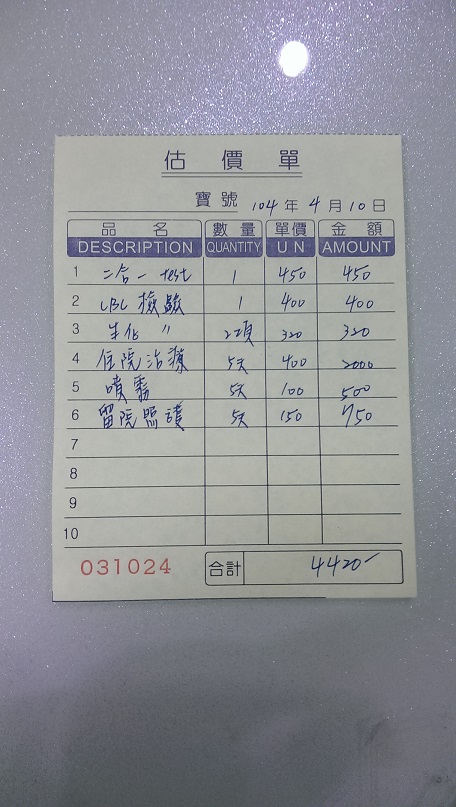 估價單
寶號 104年4月10日
品名 數量 單價 金額
DESCRIPTION QUANTITY U N AMOUNT
1 二合一 test 1 450 450
2 CBC 檢驗 1 400 400
3 生化 〃 2項 320 320
4 住院治療 5天 400 2000
5 噴霧 5天 100 500
6 留院照護 5天 150 750
7
8
9
10
031024 合計 4420